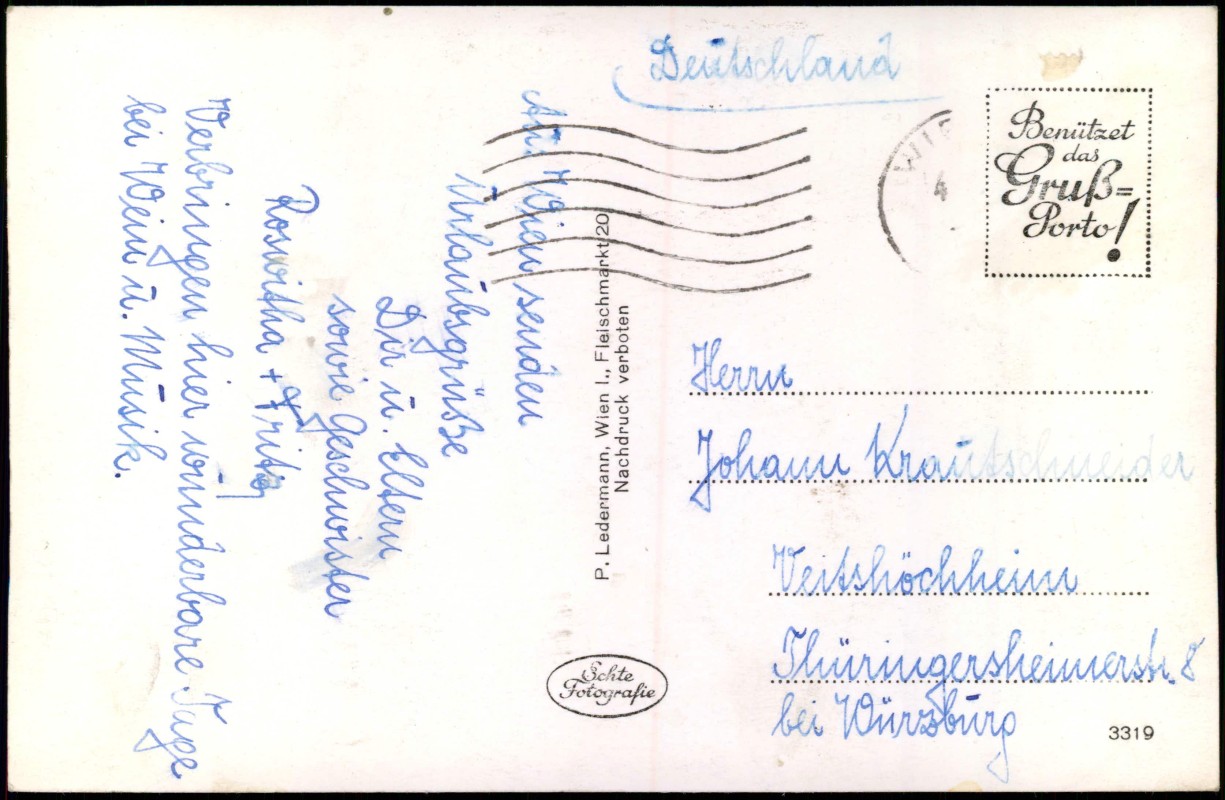 Aus Wien senden
Urlaubsgrüße
Dir u. Eltern
sowie Geschwister
Roswitha + Fritz
Verbringen hier wunderbare Tage
bei Wein u. Musik.
P. Ledermann, Wien I., Fleischmarkt 20
Nachdruck verboten
Echte
Fotografie
Deutschland
WIE
4
Benützet
das
Gruß=
Porto!
Herrn
Johann Krautschneider
Veitshöchheim
Thüringersheimerstr. 8
bei Würzburg
3319